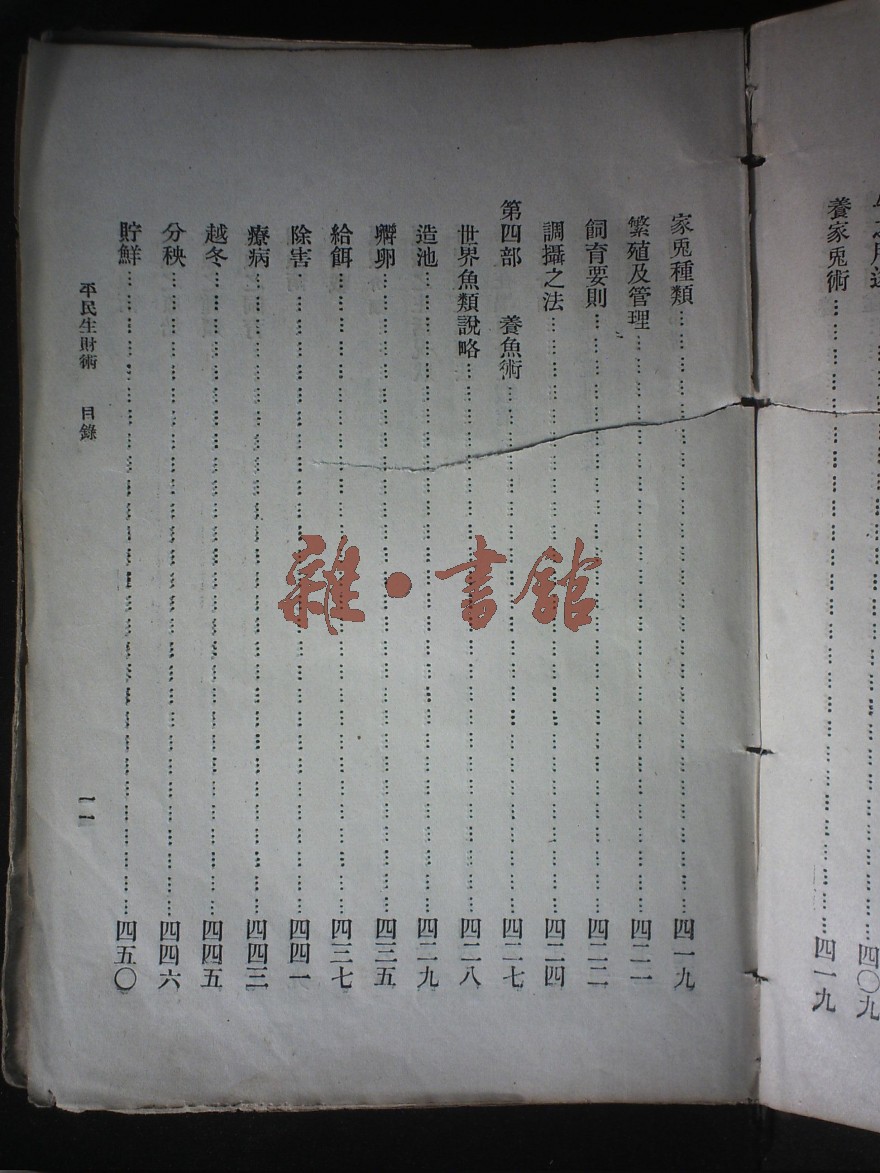 之用途……四〇九
養家兎術……四一九
家兎種類……四一九
繁殖及管理……四二一
飼育要則……四二二
調攝之法……四二四
第四部 養魚術……四二七
世界魚類說略……四二八
造池……四二九
孵卵……四三五
給餌……四三七
除害……四四一
療病……四四三
越冬……四四五
分秧……四四六
貯鮮……四五〇
平民生財術 目錄
一一
雜·書館